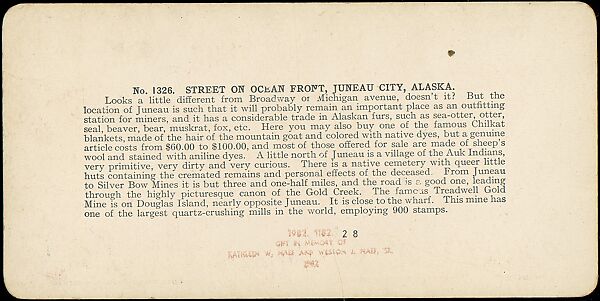 No. 1326. STREET ON OCEAN FRONT, JUNEAU CITY, ALASKA.
Looks a little different from Broadway or Michigan avenue, doesn't it? But the
location of Juneau is such that it will probably remain an important place as an outfitting
station for miners, and it has a considerable trade in Alaskan furs, such as sea-otter, otter,
seal, beaver, bear, muskrat, fox, etc. Here you may also buy one of the famous Chilkat
blankets, made of the hair of the mountain goat and colored with native dyes, but a genuine
article costs from $60.00 to $100.00, and most of those offered for sale are made of sheep's
wool and stained with aniline dyes. A little north of Juneau is a village of the Auk Indians,
very primitive, very dirty and very curious. There is a native cemetery with queer little
huts containing the cremated remains and personal effects of the deceased. From Juneau
to Silver Bow Mines it is but three and one-half miles, and the road is a good one, leading
through the highly picturesque canon of the Gold Creek. The famous Treadwell Gold
Mine is on Douglas Island, nearly opposite Juneau. It is close to the wharf. This mine has
one of the largest quartz-crushing mills in the world, employing 900 stamps.
1982. 1182. 28
GIFT IN MEMORY OF
KATHLEEN W. NAEF AND WESTON J. NAEF, SR.
1982